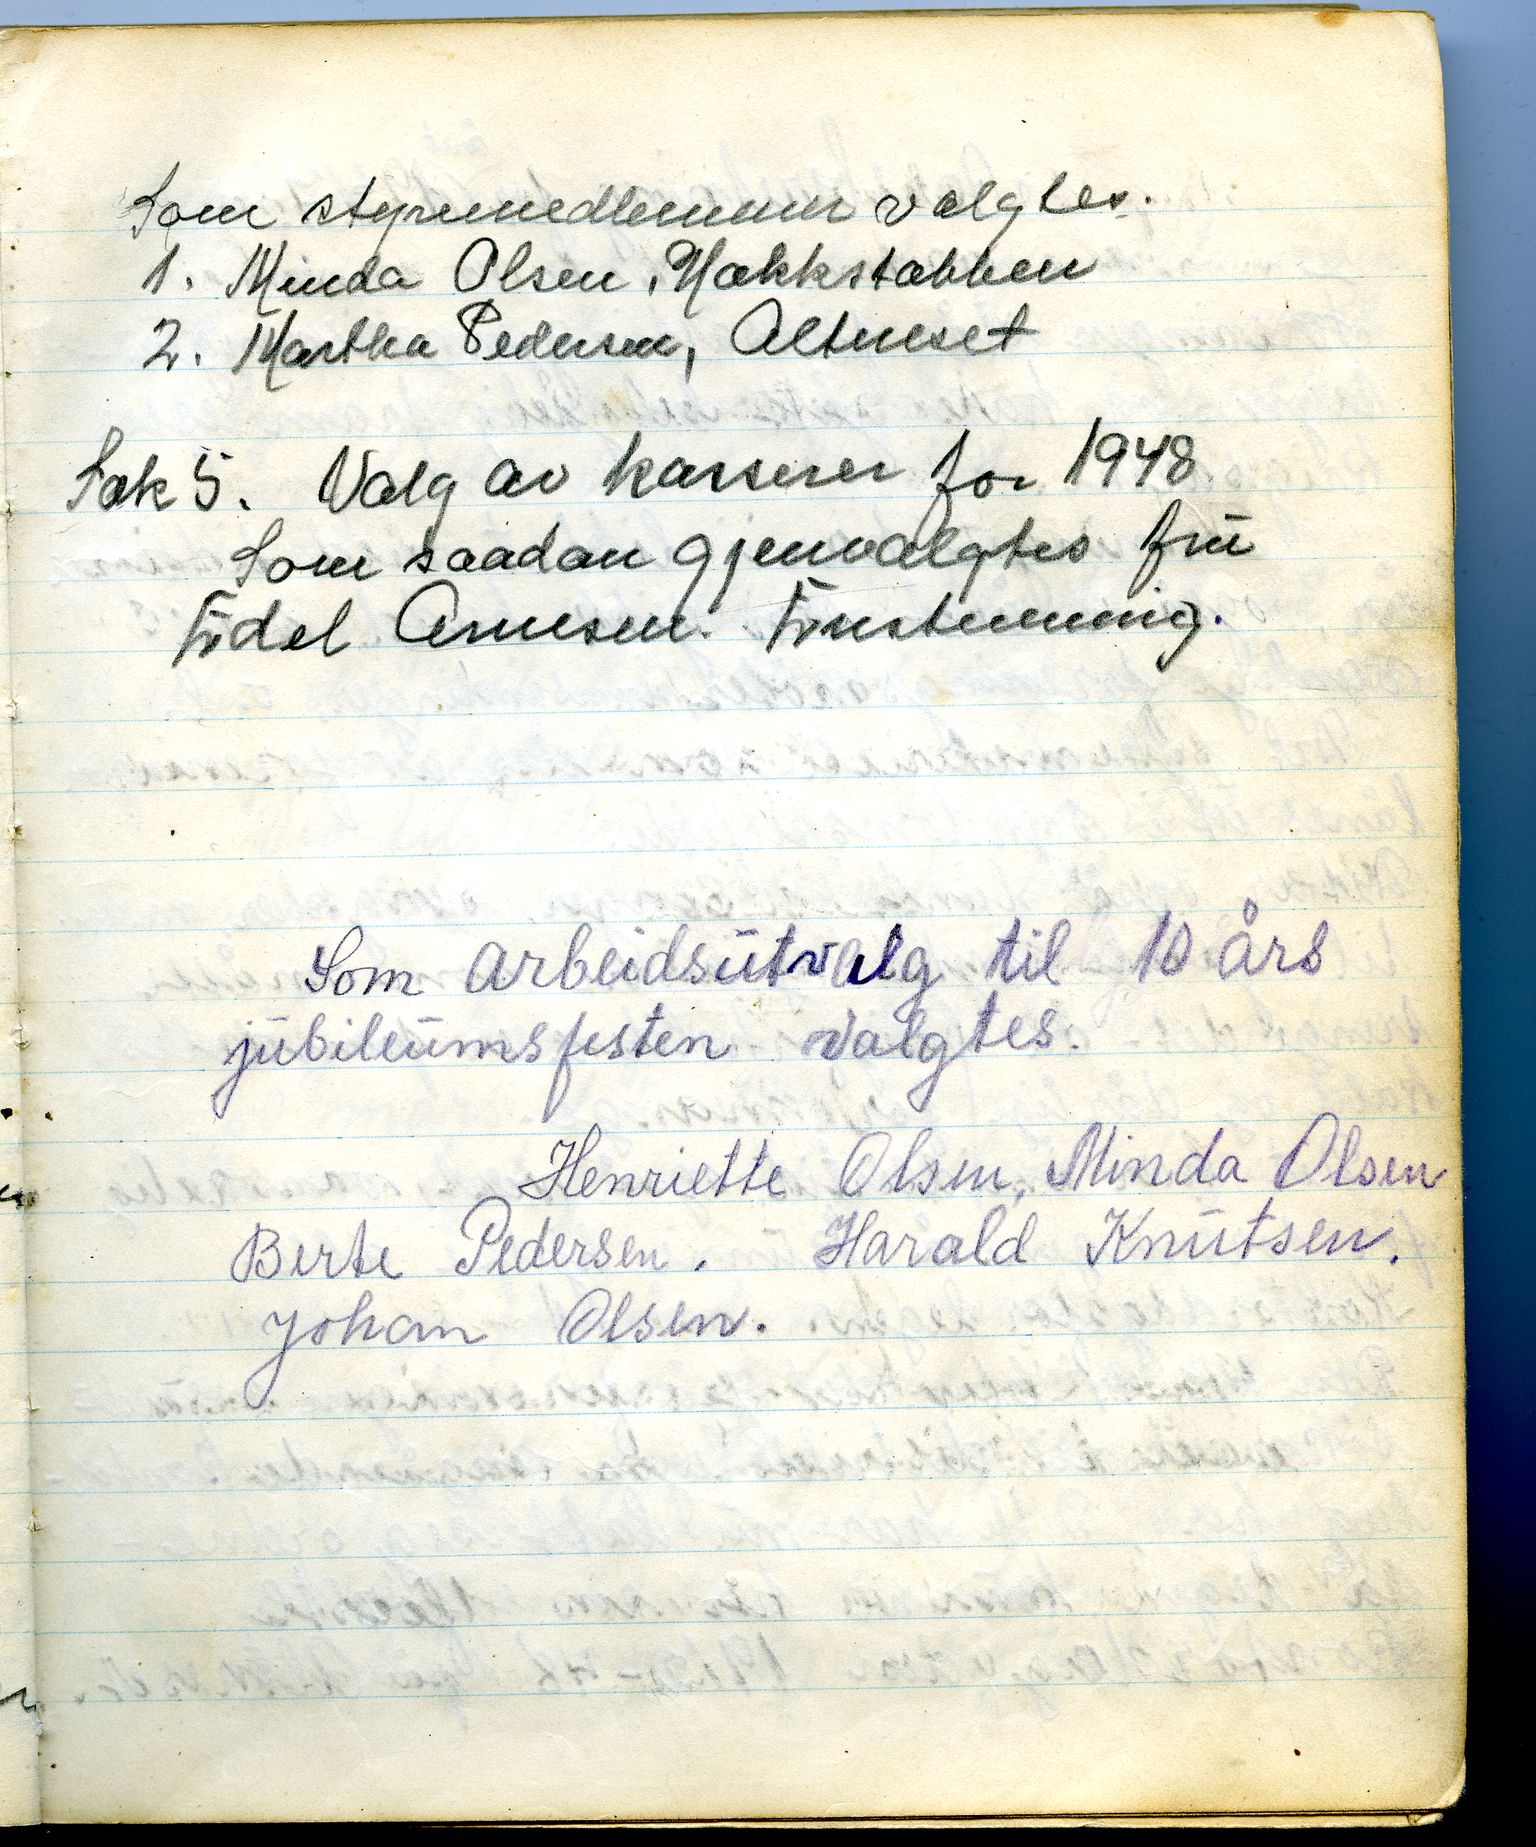 Som styremedlemmer valgtes.
1. Minda Olsen, Nakkstabben
2. Martha Pedersen, Altneset
Sak 5. Valg av kasserer for 1948
Som saadan gjenvalgtes frü
Edel Arnesen. Enstemmig.
Som arbeidsütvalg til 10 års
jübileümsfesten valgtes.
Henriette Olsen, Minda Olsen
Berte Pedersen. Harald Knütsen.
Johan Olsen.